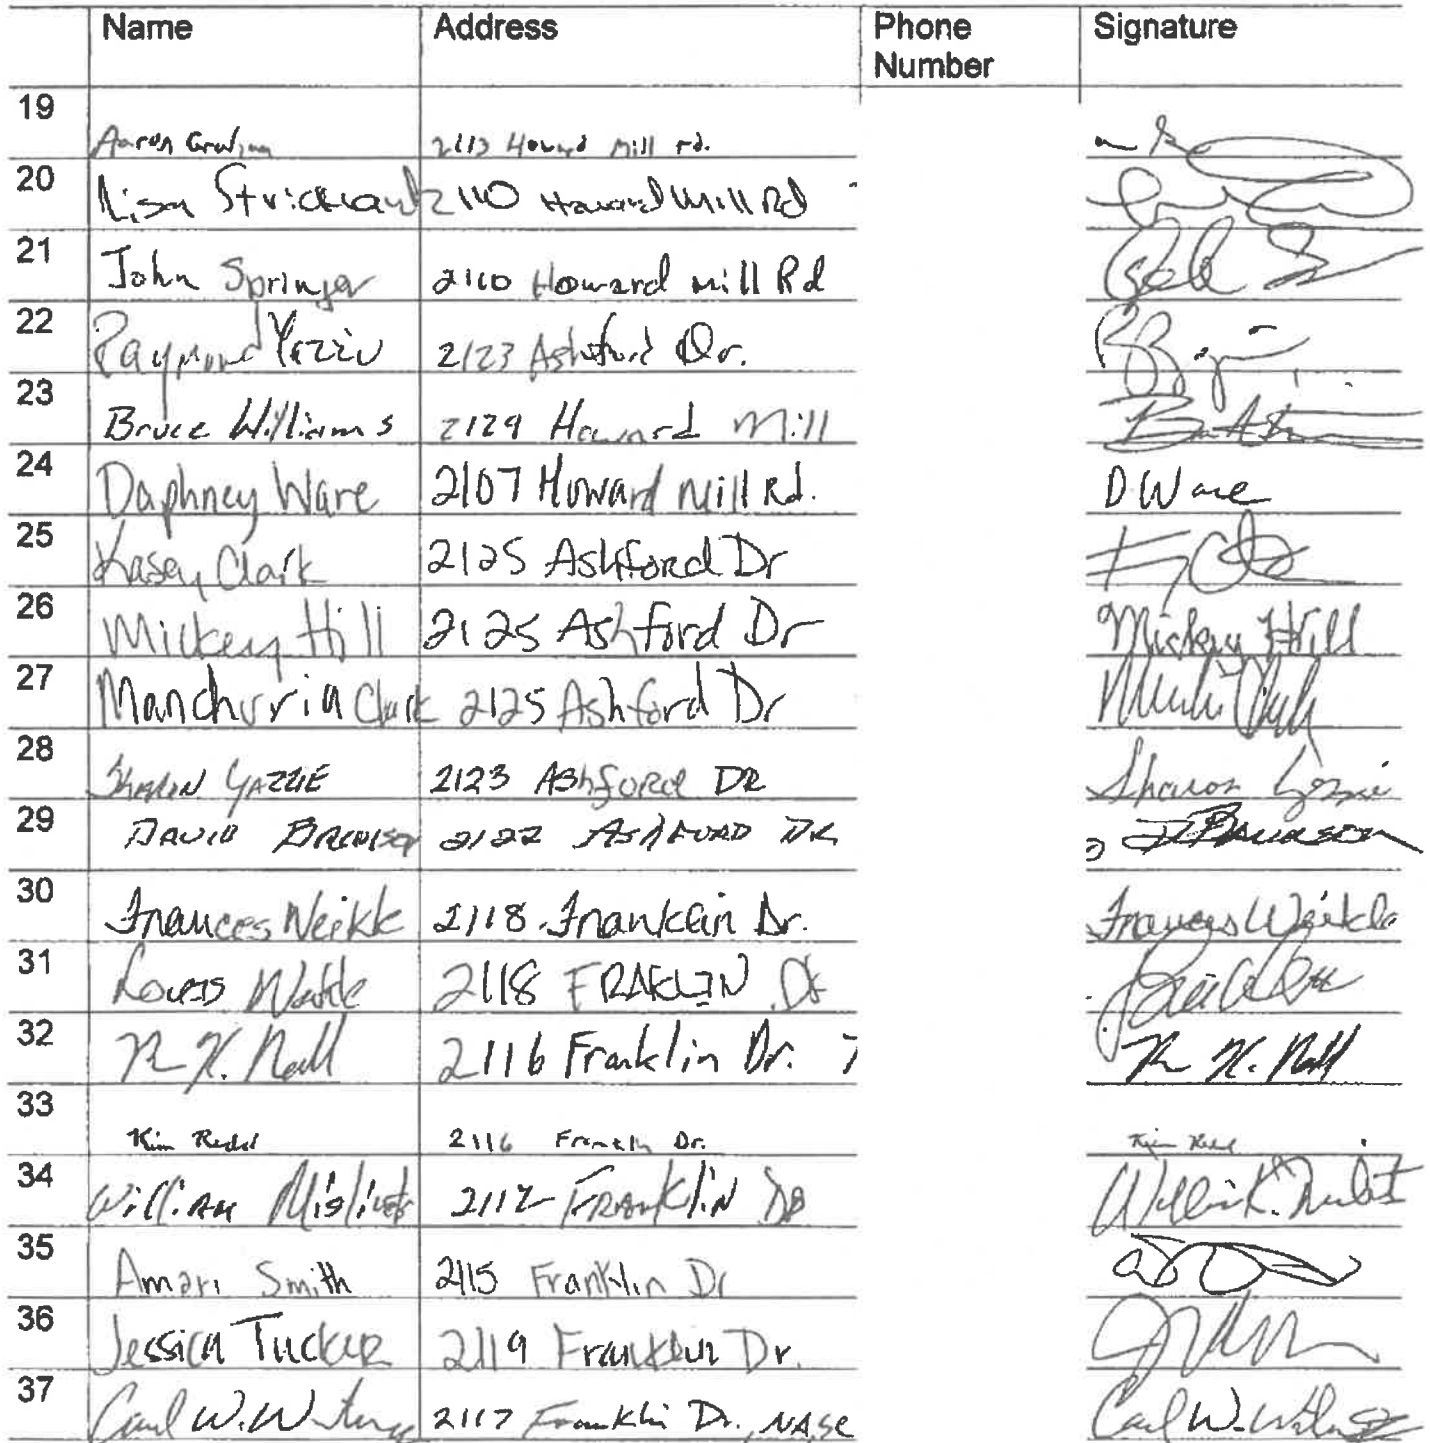 Name Address Phone Number Signature
19 Aaron Graham 2113 Howard Mill rd.
20 Lisa Strickland 2110 Howard Mill Rd
21 John Springer 2110 Howard Mill Rd
22 Raymond Yazzie 2123 Ashford Dr.
23 Bruce Williams 2129 Howard Mill
24 Daphney Ware 2107 Howard Mill Rd. D Ware
25 Kasey Clark 2125 Ashford Dr
26 Mickey Hill 2125 Ashford Dr Mickey Hill
27 Manchuria Clark 2125 Ashford Dr
28 Sharon YAZZIE 2123 AShford DR Sharon
29 DAVID 2122 ASHFORD DR
30 Frances Weikle 2118 Franklin Dr. Frances Weikle
31 Louis 2118 FRAKLIN Dr
32 K. Nall 2116 Franklin Dr. K. Nall
33 Kim 2116 Franklin Dr. Kim
34 William 2112 FRANKLIN DR
35 Amari Smith 2115 Franklin Dr
36 Jessica Tucker 2119 Franklin Dr.
37 Carl W. 2117 Franklin Dr. Carl W.